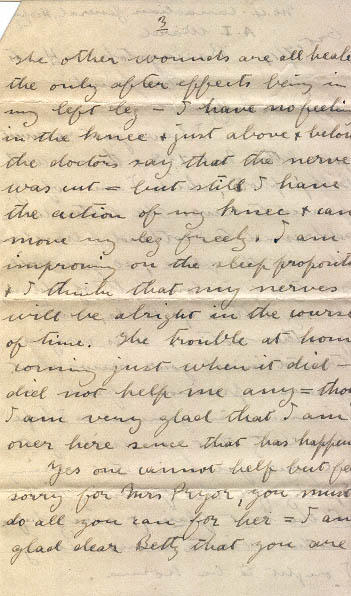 3
The other wounds are all heale
the only after effects being in
my left leg - I have no feelin
in the knee & just above & below
the doctors say that the nerve
was cut = but still I have
the action of my knee & can
move my leg freely. I am
improving on the sleep proposit
& I think that my nerves
will be alright in the course
of time. The trouble at hom
coming just when it did -
did not help me any = thou
I am very glad that I am
over here since that has happen
Yes one cannot help but fee
sorry for Mrs Pryor, you must
do all you can for her = I am
glad dear Betty that you are